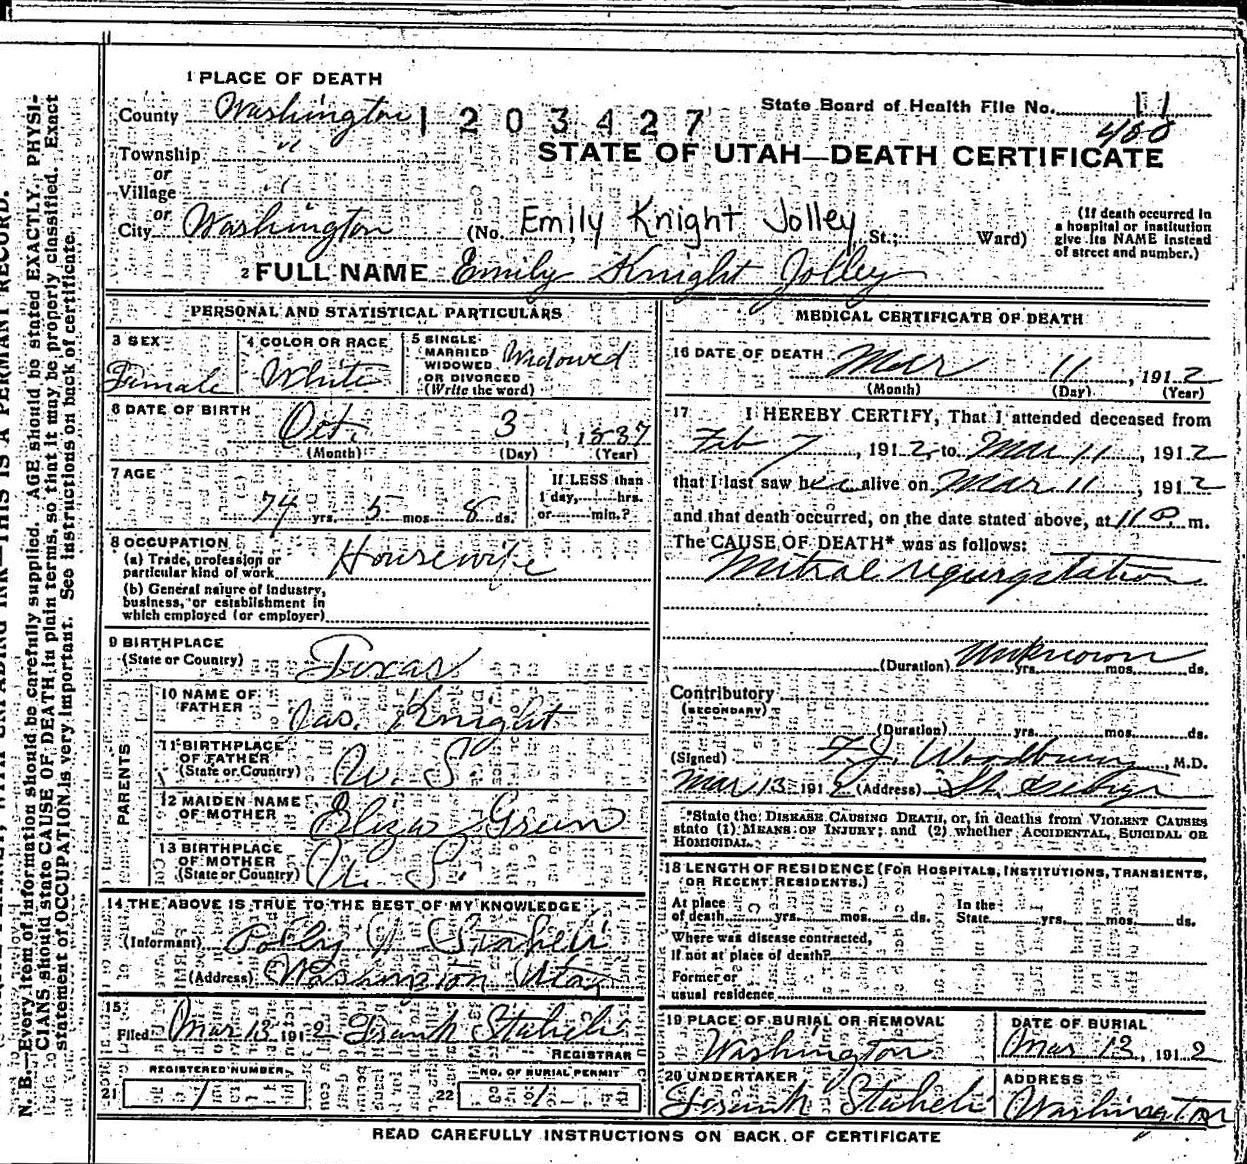 N. B.—Every item of information should be carefully supplied. AGE should be stated EXACTLY. PHYSI-
CIANS should state CAUSE OF DEATH in plain terms, so that it may be properly classified. Exact
statement of OCCUPATION is very important. See instructions on back of certificate.
THIS IS A PERMANENT RECORD.
1 PLACE OF DEATH
County Washington
1203427
State Board of Health File No. 11
488
STATE OF UTAH—DEATH CERTIFICATE
Township "
or
Village "
or
City Washington (No. Emily Knight Jolley St.; Ward)
(If death occurred in
a hospital or institution
give its NAME instead
of street and number.)
2 FULL NAME Emily Knight Jolley
PERSONAL AND STATISTICAL PARTICULARS
3 SEX
Female
4 COLOR OR RACE
White
5 SINGLE
MARRIED
WIDOWED
OR DIVORCED
(Write the word)
Widowed
6 DATE OF BIRTH
Oct. 3, 1837
(Month) (Day) (Year)
7 AGE
74 yrs. 5 mos. 8 ds.
If LESS than
1 day, hrs.
or min.?
8 OCCUPATION
(a) Trade, profession or
particular kind of work Housewife
(b) General nature of industry,
business, or establishment in
which employed (or employer)
9 BIRTHPLACE
(State or Country) Texas
PARENTS
10 NAME OF
FATHER Jas. Knight
11 BIRTHPLACE
OF FATHER
(State or Country) U. S.
12 MAIDEN NAME
OF MOTHER Eliza Green
13 BIRTHPLACE
OF MOTHER
(State or Country) U. S.
14 THE ABOVE IS TRUE TO THE BEST OF MY KNOWLEDGE
(Informant) Polly J Staheli
(Address) Washington Utah
15
Filed Mar 13 1912 Frank Staheli
REGISTRAR
REGISTERED NUMBER
21 1
NO. OF BURIAL PERMIT
22 1
MEDICAL CERTIFICATE OF DEATH
16 DATE OF DEATH Mar 11, 1912
(Month) (Day) (Year)
17 I HEREBY CERTIFY, That I attended deceased from
Feb 7, 1912, to Mar 11, 1912
that I last saw her alive on Mar 11, 1912
and that death occurred, on the date stated above, at 11 P. m.
The CAUSE OF DEATH* was as follows:
Mitral regurgtation
(Duration) Unknown yrs. mos. ds.
Contributory
(SECONDARY)
(Duration) yrs. mos. ds.
(Signed) F. J. Woodbury, M.D.
Mar 13 1912 (Address) St. George
*State the DISEASE CAUSING DEATH, or, in deaths from VIOLENT CAUSES
state (1) MEANS OF INJURY; and (2) whether ACCIDENTAL, SUICIDAL OR
HOMICIDAL.
18 LENGTH OF RESIDENCE (FOR HOSPITALS, INSTITUTIONS, TRANSIENTS,
OR RECENT RESIDENTS.)
At place
of death yrs. mos. ds.
In the
State yrs. mos. ds.
Where was disease contracted,
if not at place of death?
Former or
usual residence
19 PLACE OF BURIAL OR REMOVAL
Washington
DATE OF BURIAL
Mar 13, 1912
20 UNDERTAKER
Frank Staheli
ADDRESS
Washington
READ CAREFULLY INSTRUCTIONS ON BACK OF CERTIFICATE